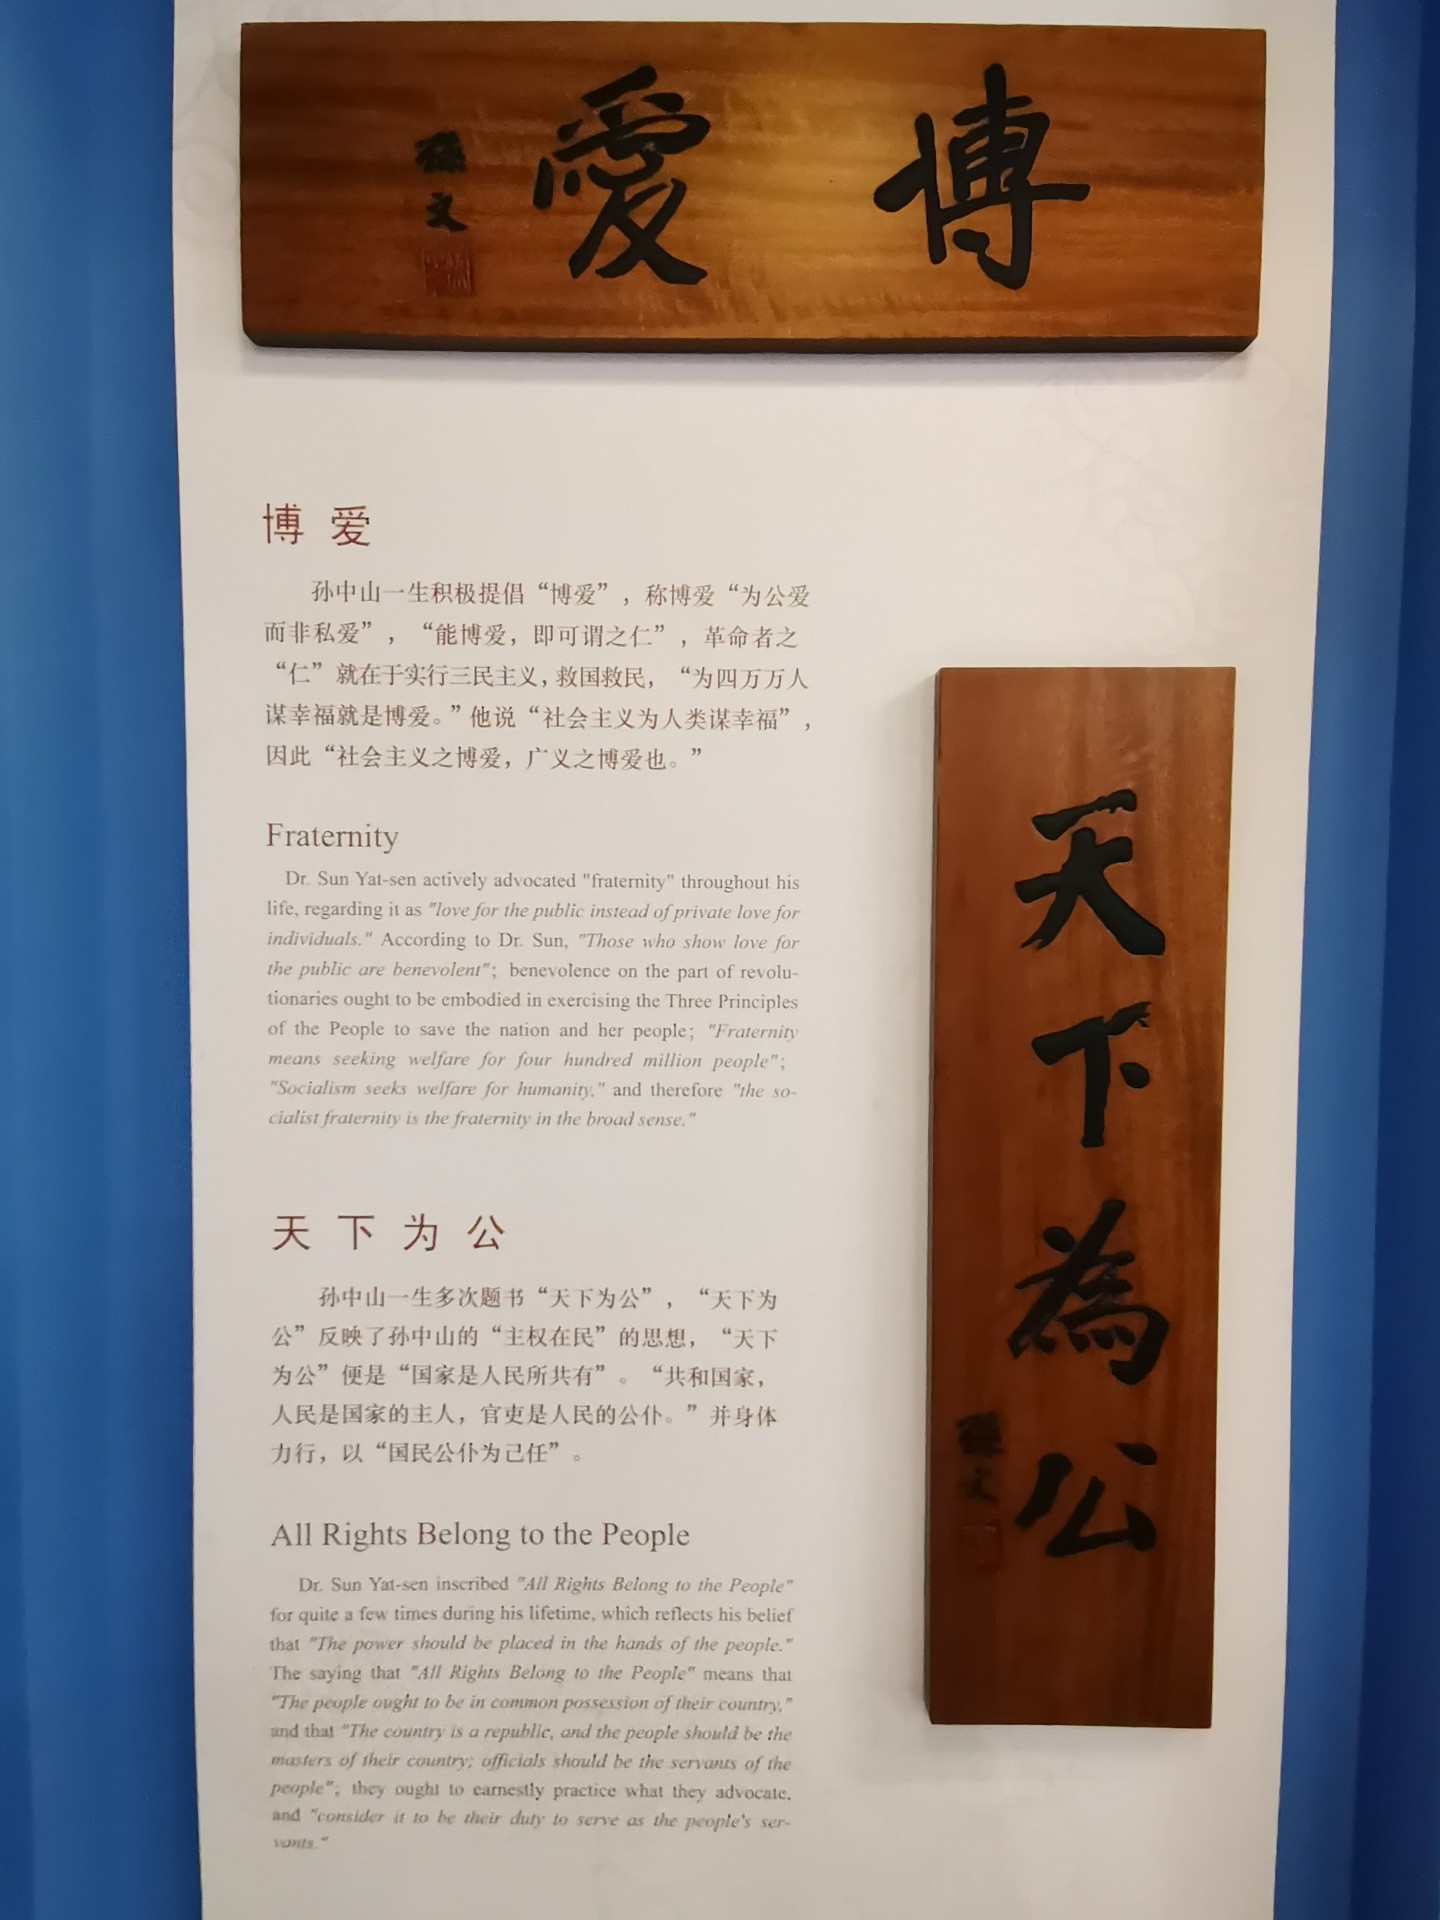 博愛
孫文
博爱
孙中山一生积极提倡“博爱”，称博爱“为公爱
而非私爱”，“能博爱，即可谓之仁”，革命者之
“仁”就在于实行三民主义，救国救民，“为四万万人
谋幸福就是博爱。”他说“社会主义为人类谋幸福”，
因此“社会主义之博爱，广义之博爱也。”
Fraternity
Dr. Sun Yat-sen actively advocated "fraternity" throughout his
life, regarding it as "love for the public instead of private love for
individuals." According to Dr. Sun, "Those who show love for
the public are benevolent"; benevolence on the part of revolu-
tionaries ought to be embodied in exercising the Three Principles
of the People to save the nation and her people; "Fraternity
means seeking welfare for four hundred million people";
"Socialism seeks welfare for humanity," and therefore "the so-
cialist fraternity is the fraternity in the broad sense."
天下為公
孫文
天下为公
孙中山一生多次题书“天下为公”，“天下为
公”反映了孙中山的“主权在民”的思想，“天下
为公”便是“国家是人民所共有”。“共和国家，
人民是国家的主人，官吏是人民的公仆。”并身体
力行，以“国民公仆为己任”。
All Rights Belong to the People
Dr. Sun Yat-sen inscribed "All Rights Belong to the People"
for quite a few times during his lifetime, which reflects his belief
that "The power should be placed in the hands of the people."
The saying that "All Rights Belong to the People" means that
"The people ought to be in common possession of their country,"
and that "The country is a republic, and the people should be the
masters of their country; officials should be the servants of the
people"; they ought to earnestly practice what they advocate,
and "consider it to be their duty to serve as the people's ser-
vants."